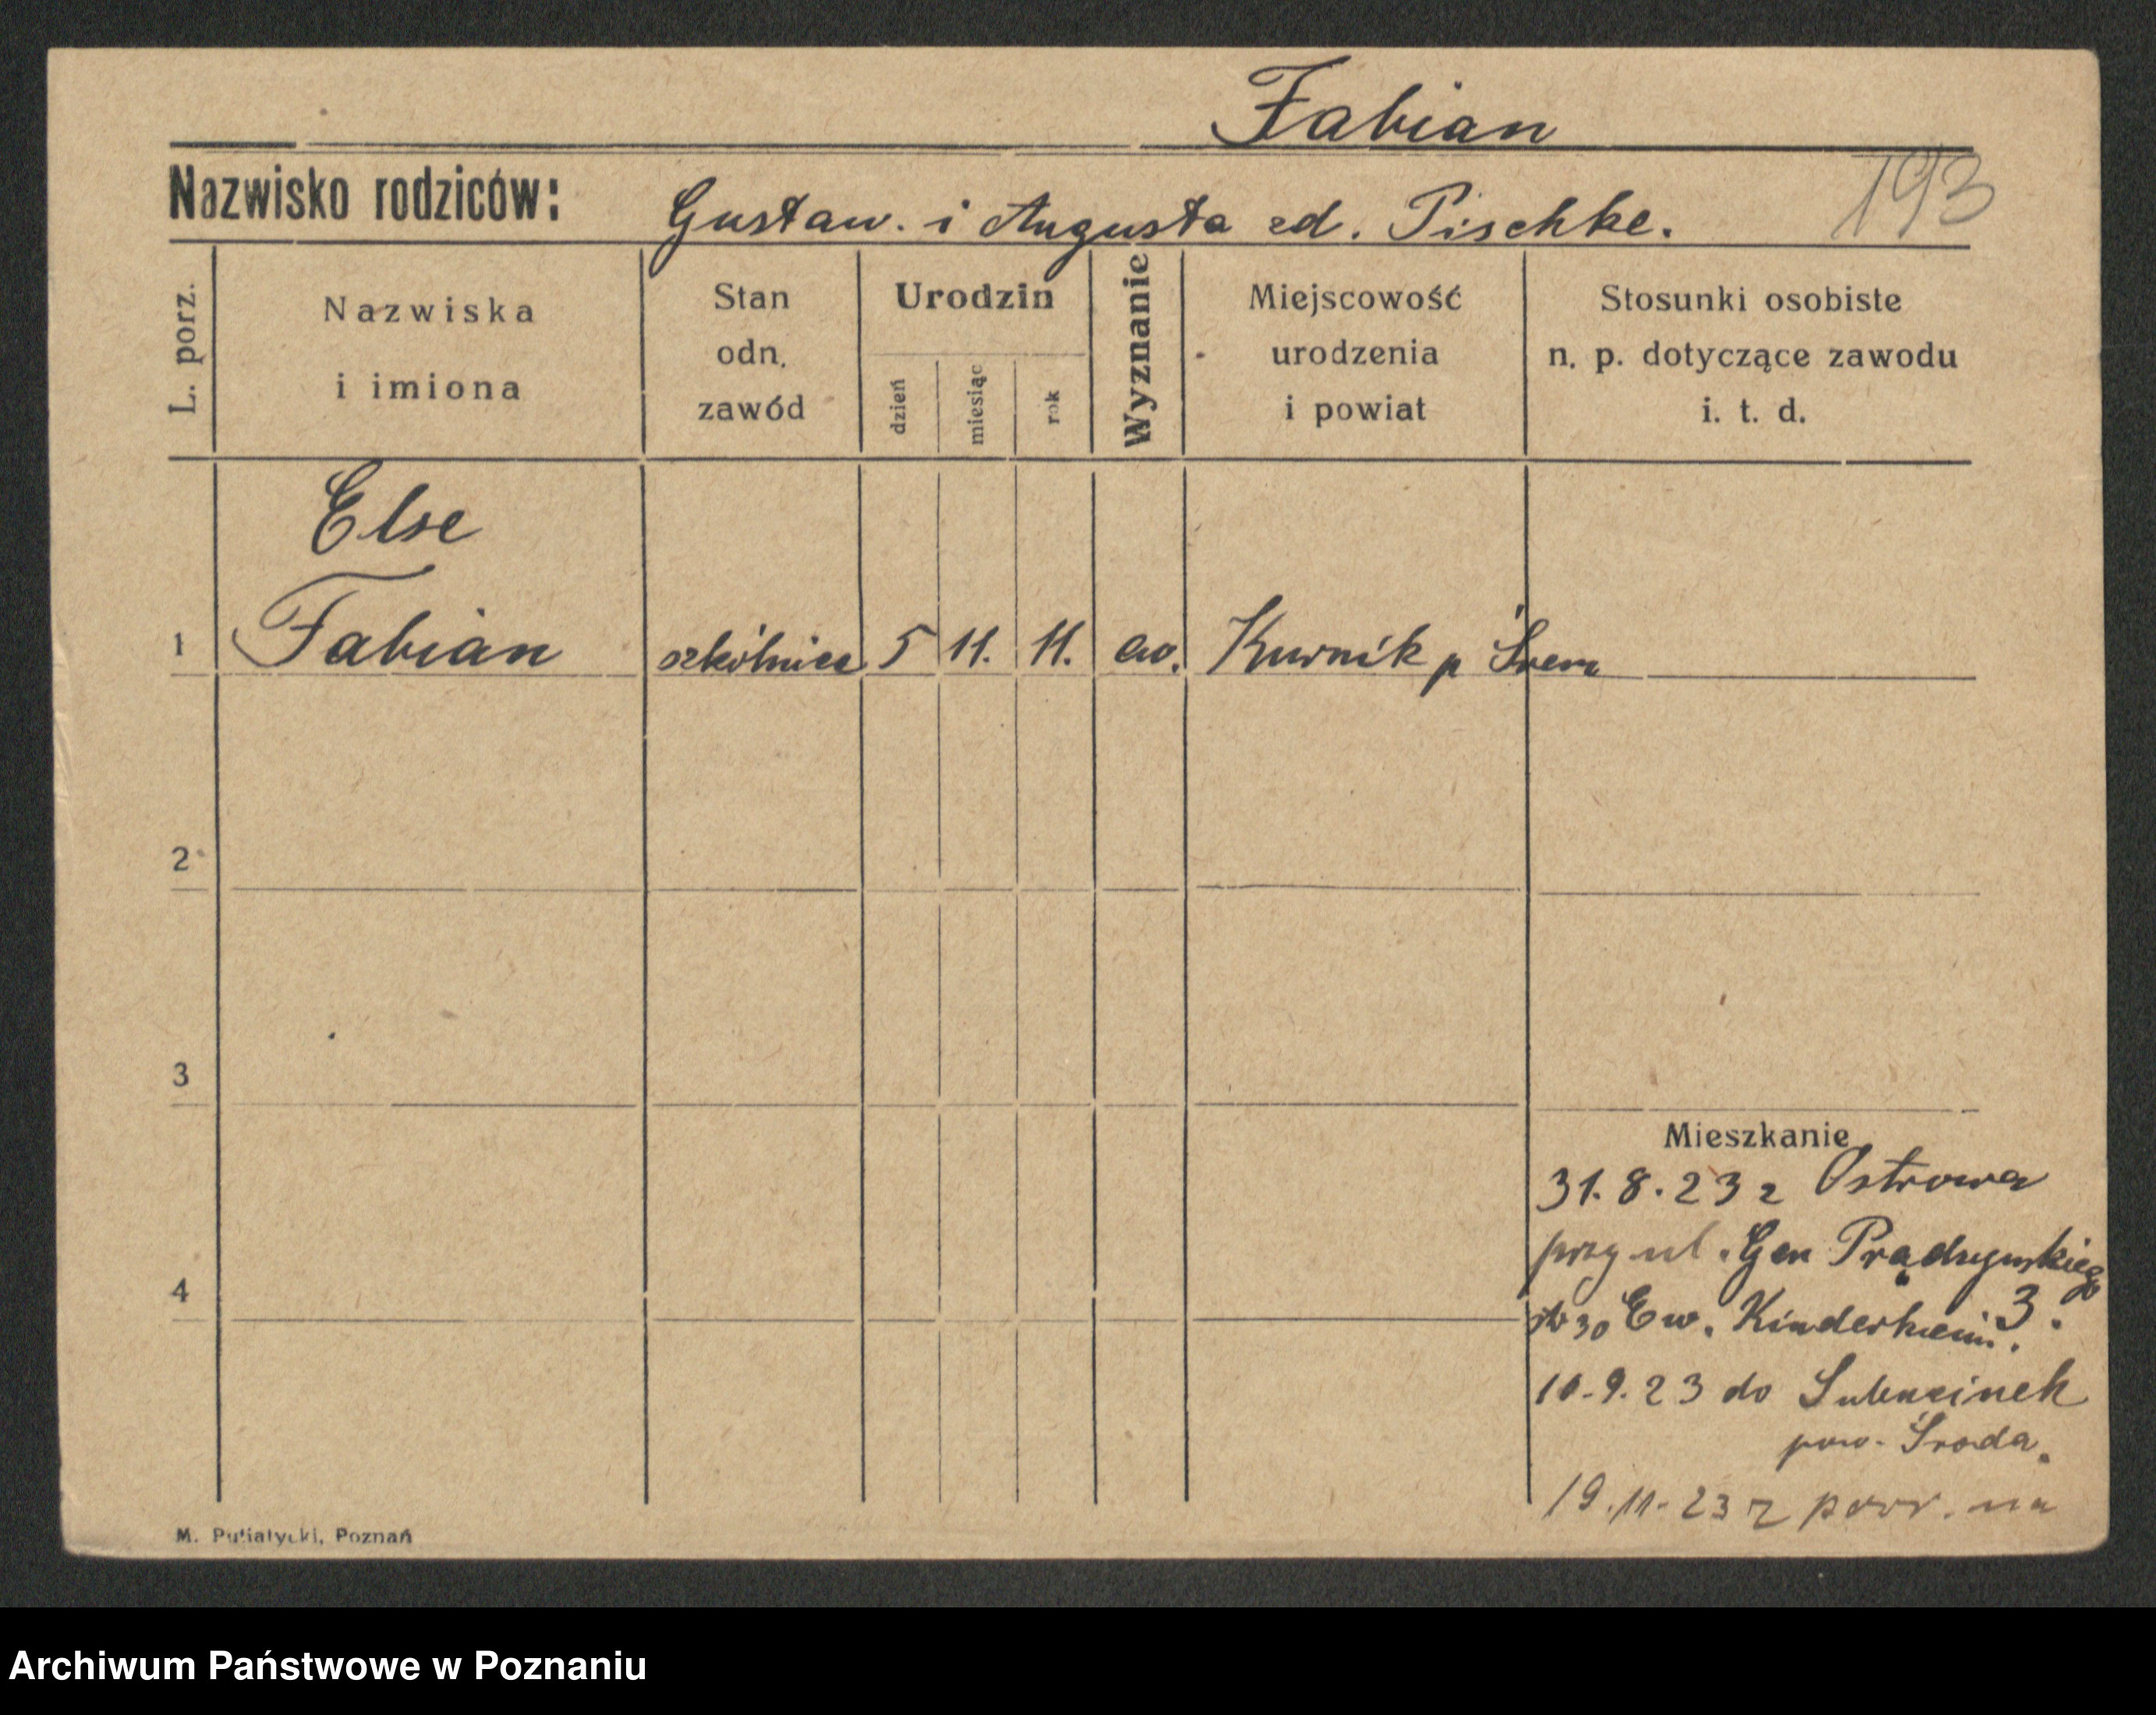 Fabian
Nazwisko rodziców: Gustaw. i Augusta zd. Pischke. 193
L. porz.
Nazwiska
i imiona
Stan
odn.
zawód
Urodzin
dzień
miesiąc
rok
Wyznanie
Miejscowość
urodzenia
i powiat
Stosunki osobiste
n. p. dotyczące zawodu
i. t. d.
Else
1 Fabian 5 11. 11. ew. Kurnik p Śrem
2
3
Mieszkanie
31.8.23 z Ostrowa
przy ul. Gen Prądzyńskiego
3.
30 Ew. Kinderheim.
10.9.23 do
pow. Środa.
19.11.23 z pow. na
4
M. Putiatycki, Poznań
Archiwum Państwowe w Poznaniu